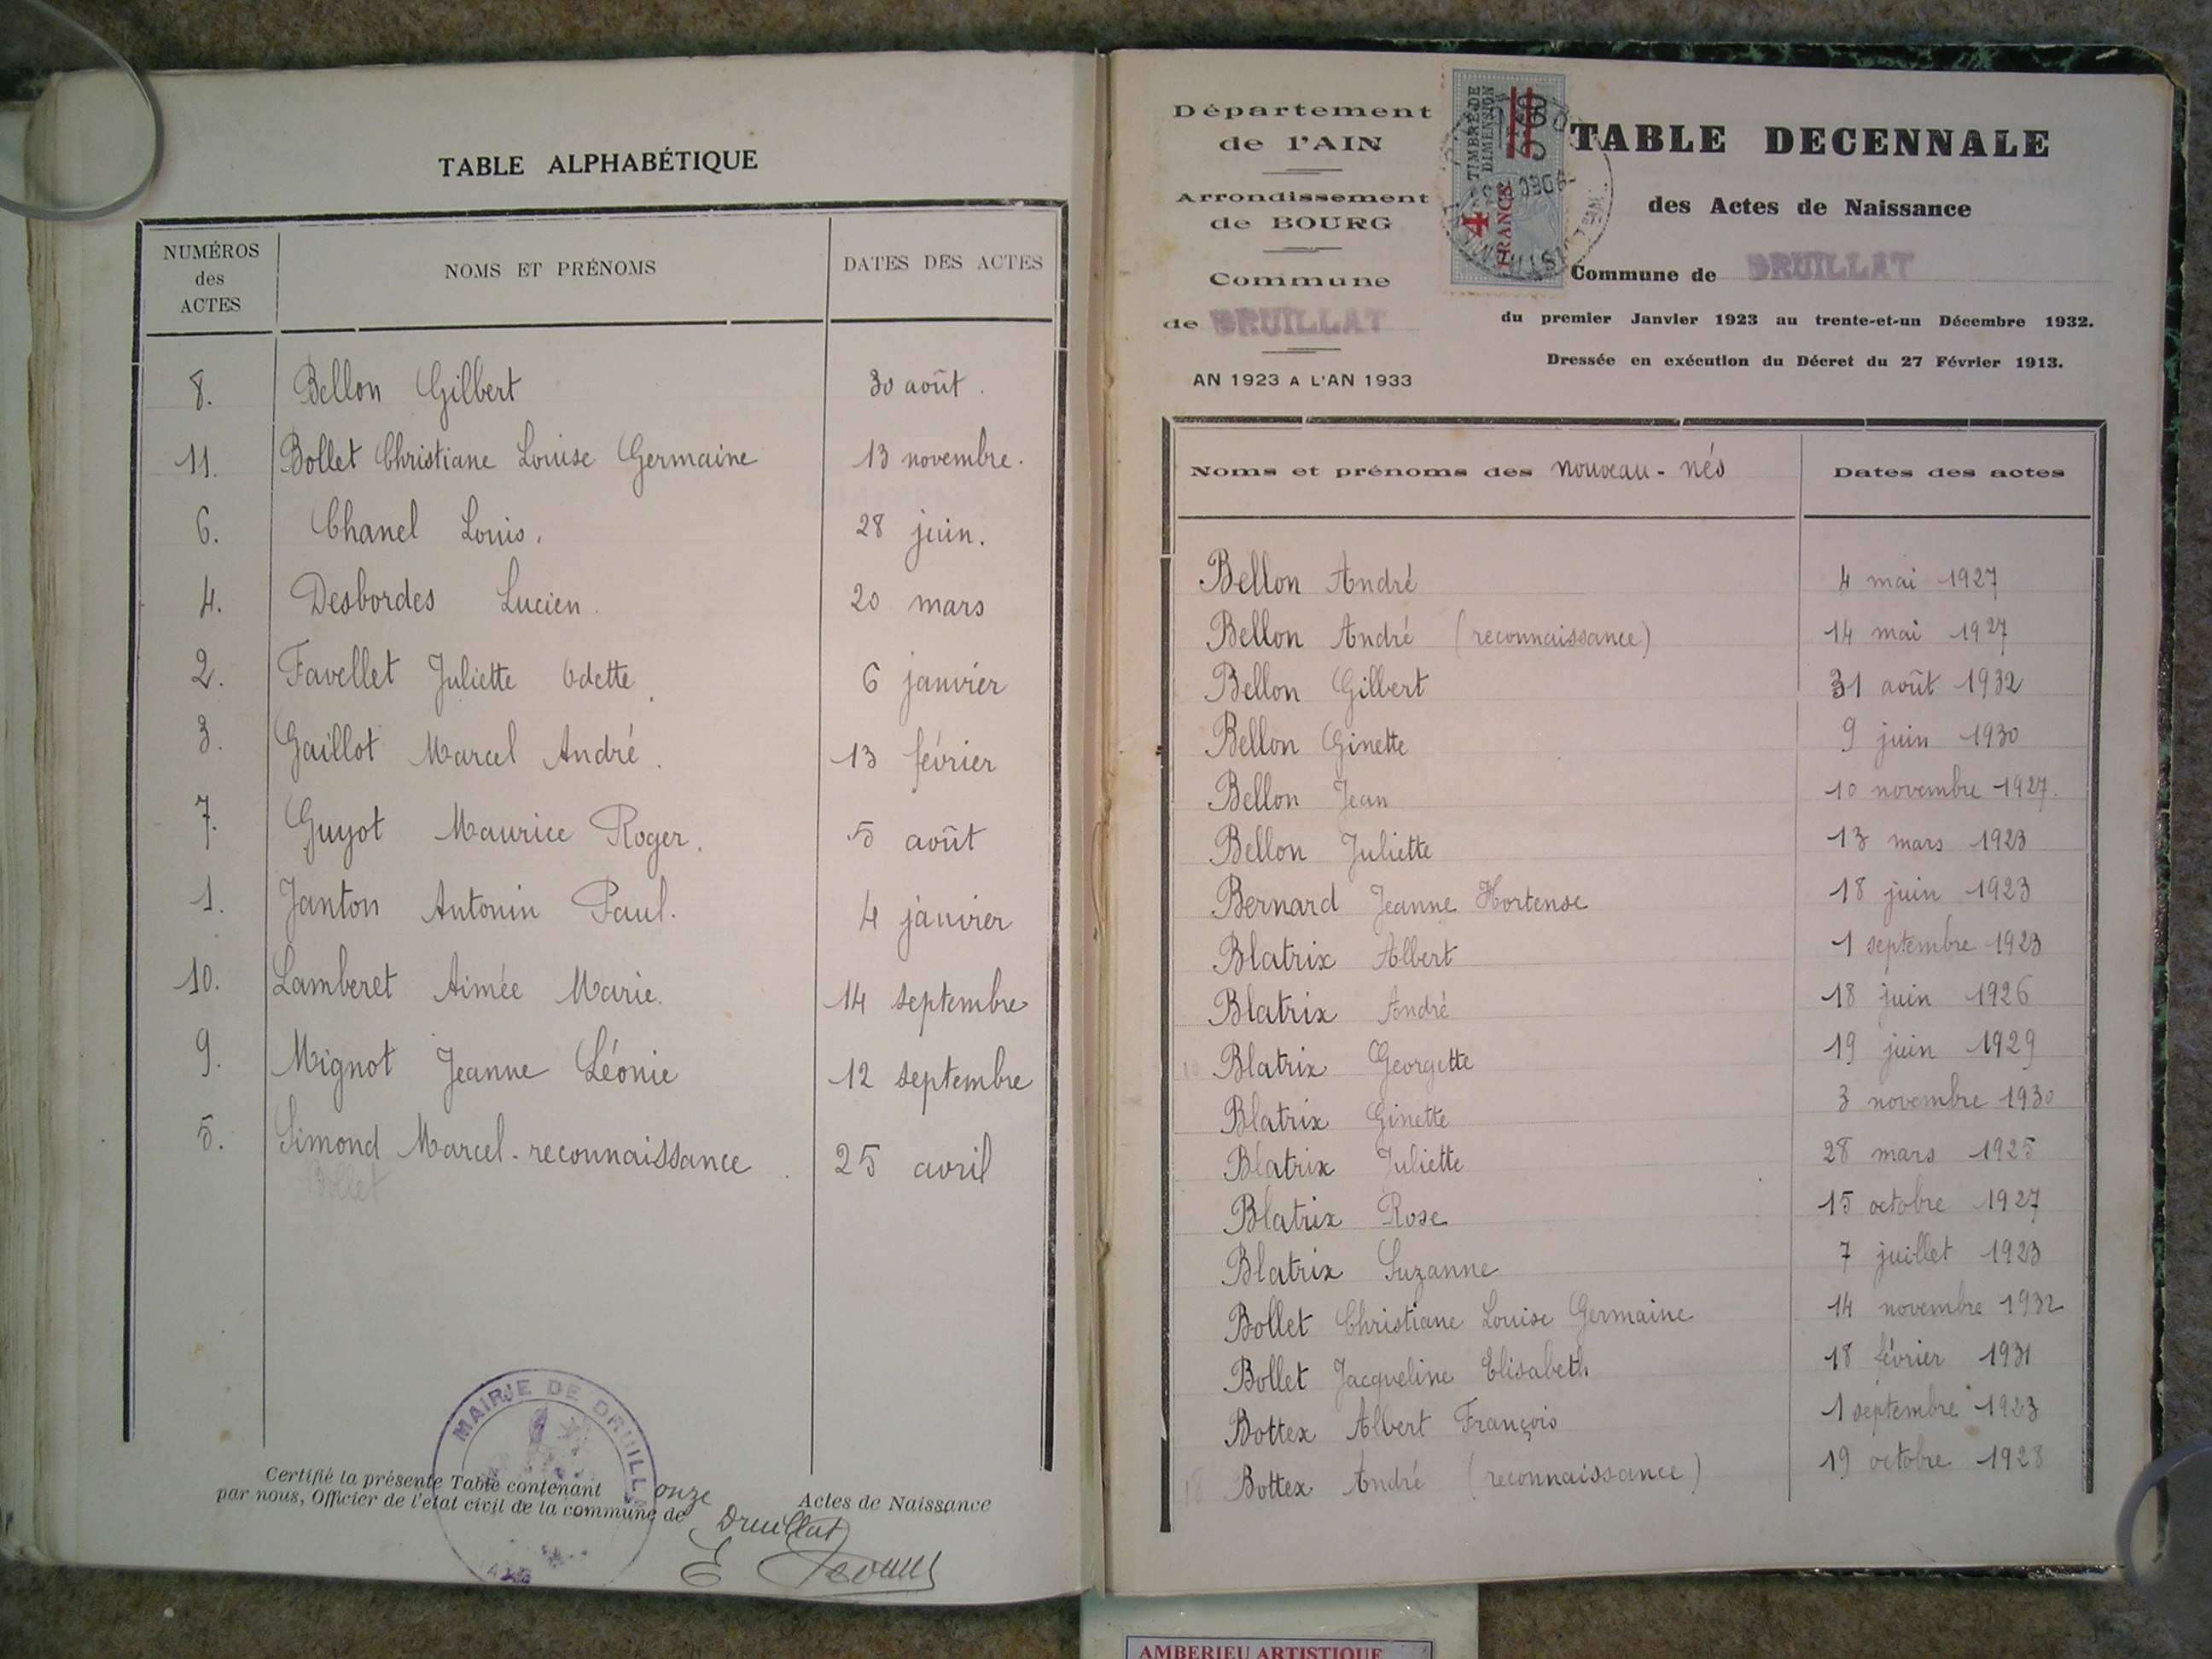 TABLE ALPHABÉTIQUE
NUMÉROS des ACTES NOMS ET PRÉNOMS DATES DES ACTES
8. Bellon Gilbert 30 août.
11. Bollet Christiane Louise Germaine 13 novembre.
6. Chanel Louis. 28 juin.
4. Desbordes Lucien. 20 mars
2. Favellet Juliette Odette. 6 janvier
3. Gaillot Marcel André. 13 février
7. Guyot Maurice Roger. 5 août
1. Janton Antonin Paul. 4 janvier
10. Lamberet Aimée Marie. 14 septembre
9. Mignot Jeanne Léonie 12 septembre
5. Simond Marcel - reconnaissance. 25 avril
Bollet
MAIRIE DE DRUILL
AIN
Certifié la présente Table contenant onze Actes de Naissance
par nous, Officier de l'état civil de la commune de Druillat
Département
de l'AIN
Arrondissement
de BOURG
Commune
de DRUILLAT
AN 1923 A L'AN 1933
TIMBRE DE
DIMENSION
4 FRANCS
TABLE DECENNALE
des Actes de Naissance
Commune de DRUILLAT
du premier Janvier 1923 au trente-et-un Décembre 1932.
Dressée en exécution du Décret du 27 Février 1913.
Noms et prénoms des nouveau-nés Dates des actes
Bellon André 4 mai 1927
Bellon André (reconnaissance) 14 mai 1927
Bellon Gilbert 31 août 1932
Bellon Ginette 9 juin 1930
Bellon Jean 10 novembre 1927.
Bellon Juliette 13 mars 1923
Bernard Jeanne Hortense 18 juin 1923
Blatrix Albert 1 septembre 1923
Blatrix André 18 juin 1926
10 Blatrix Georgette 19 juin 1929
Blatrix Ginette 3 novembre 1930
Blatrix Juliette 28 mars 1925
Blatrix Rose 15 octobre 1927
Blatrix Suzanne 7 juillet 1923
Bollet Christiane Louise Germaine 14 novembre 1932
Bollet Jacqueline Elisabeth 18 février 1931
Bottex Albert François 1 septembre 1923
18 Bottex André (reconnaissance) 19 octobre 1928
AMBERIEU ARTISTIQUE